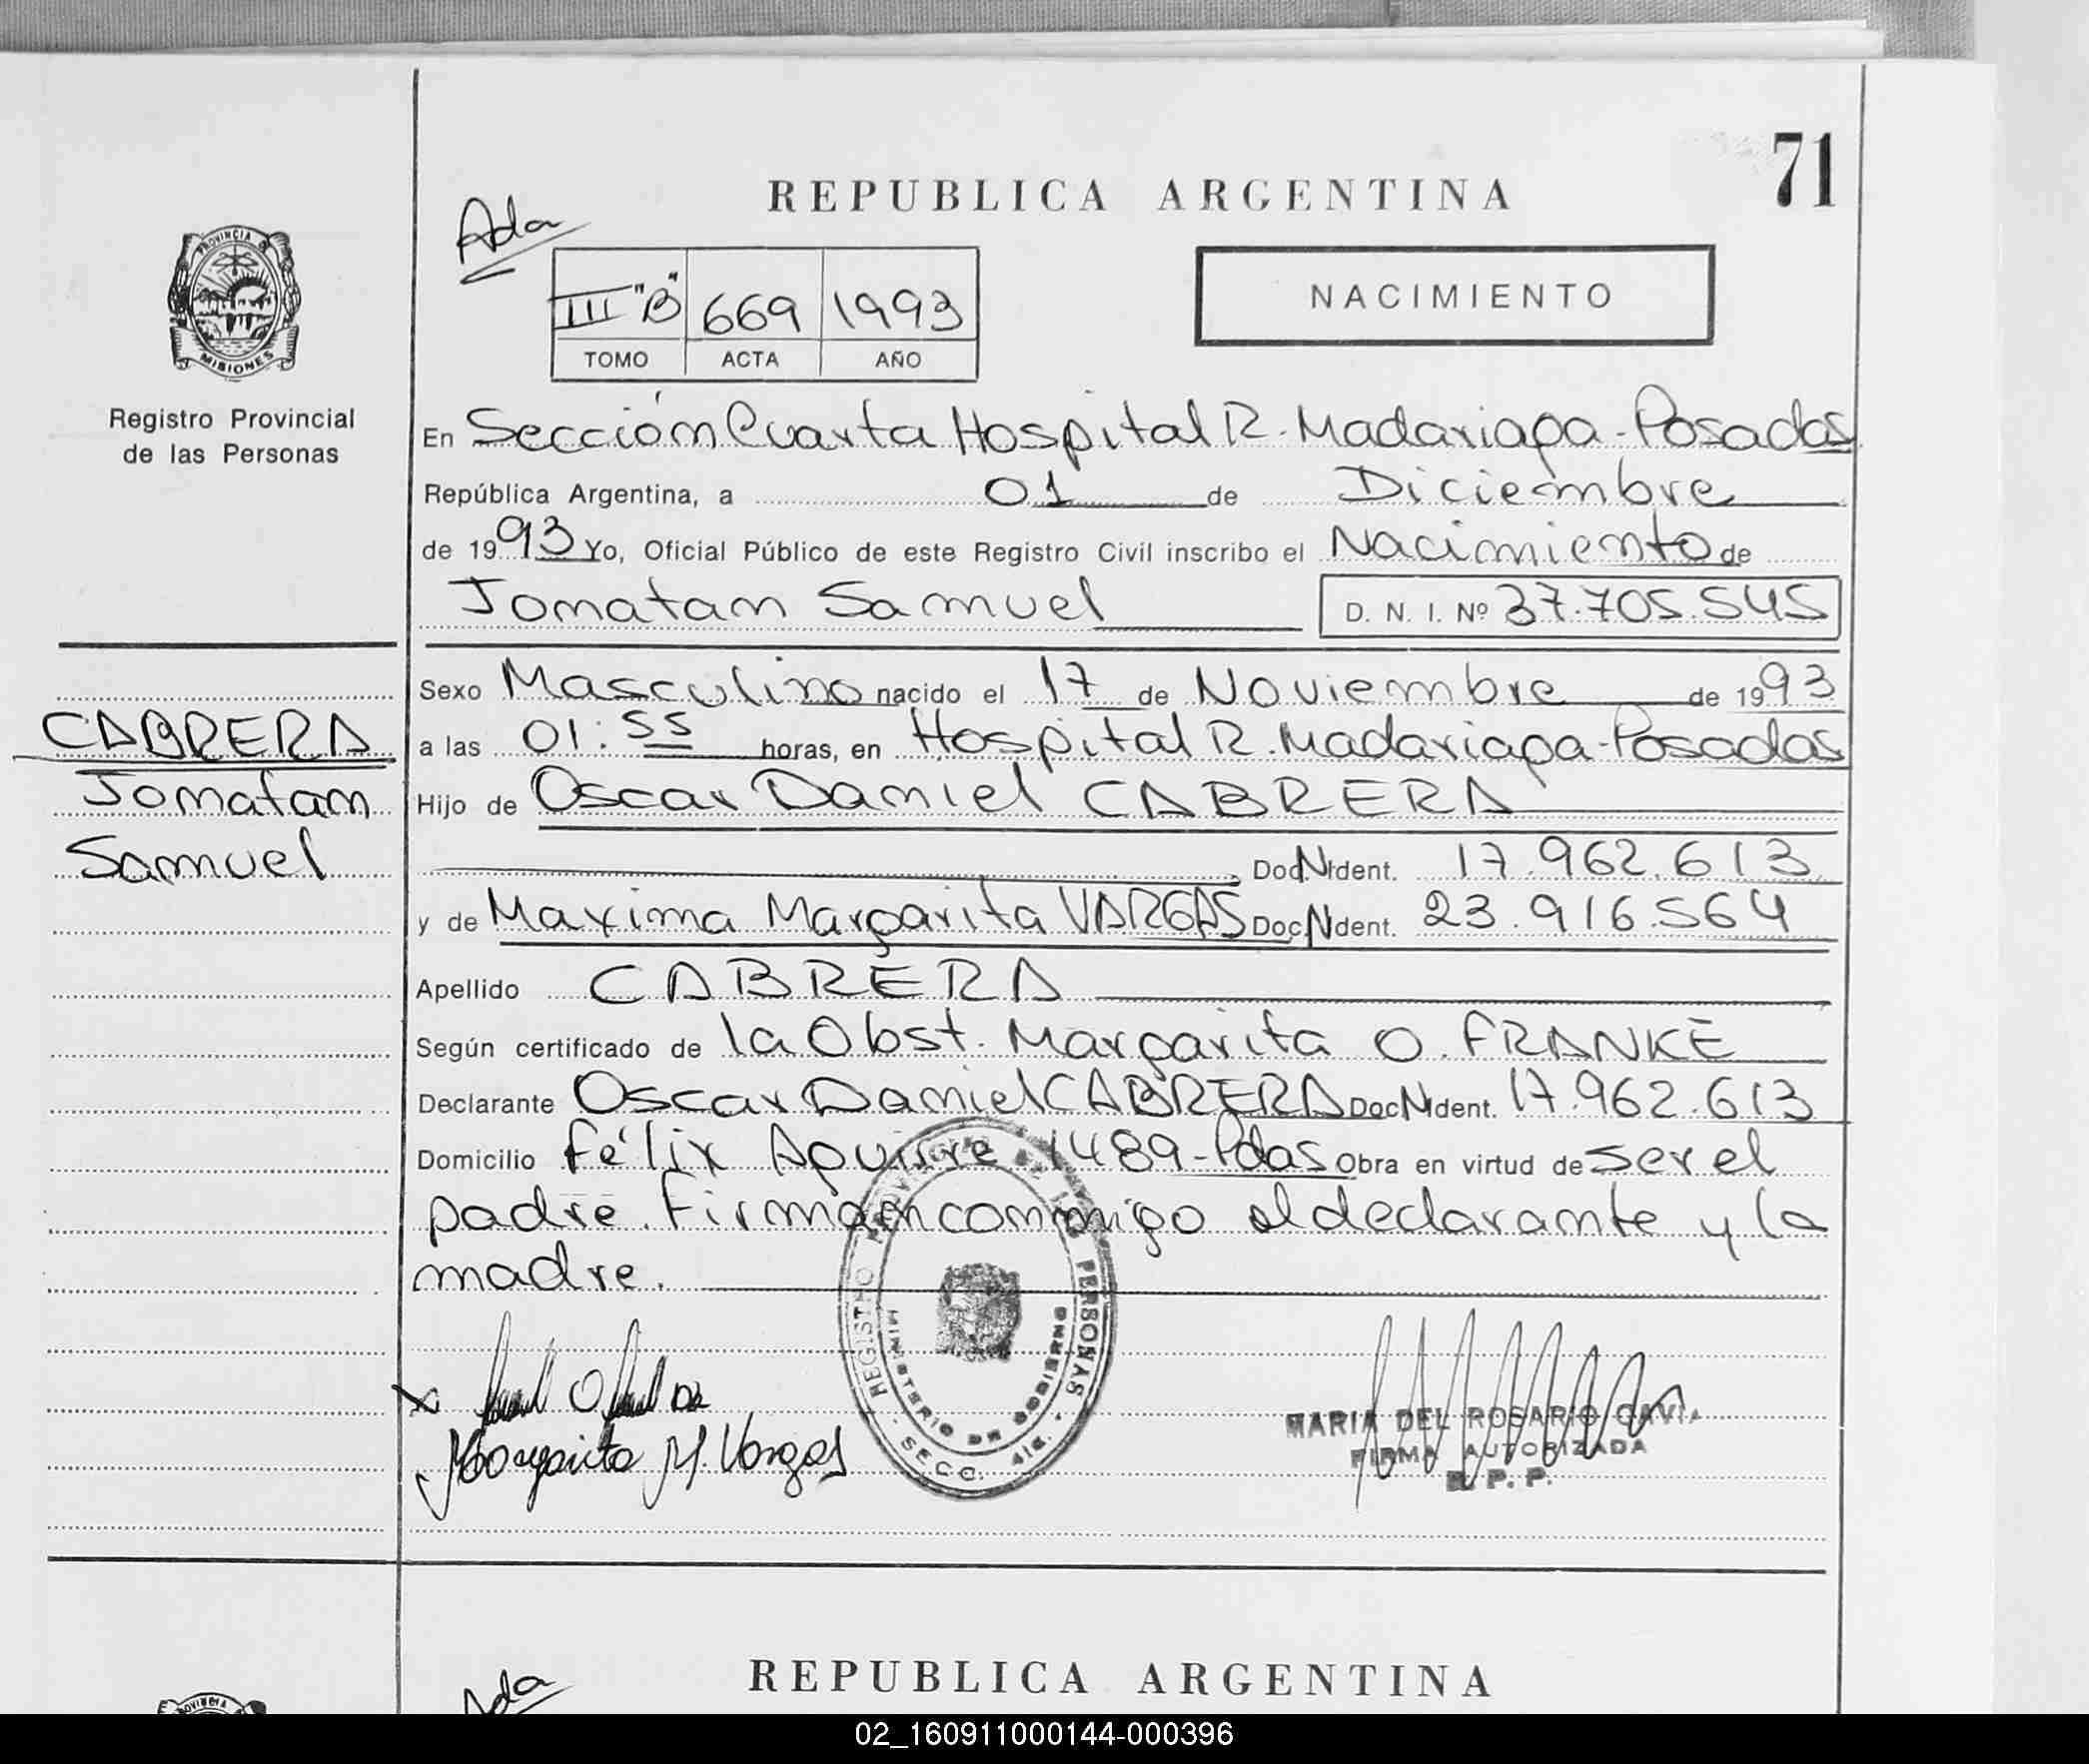 71
REPUBLICA ARGENTINA
Ada
PROVINCIA DE
MISIONES
III "B" 669 1993
TOMO ACTA AÑO
NACIMIENTO
Registro Provincial
de las Personas
En Sección Cuarta Hospital R. Madariaga - Posadas
República Argentina, a 01 de Diciembre
de 1993 Yo, Oficial Público de este Registro Civil inscribo el Nacimiento de
Jonatan Samuel D. N. I. Nº 37.705.545
Sexo Masculino nacido el 17 de Noviembre de 1993
CABRERA
Jonatan
Samuel
a las 01:55 horas, en Hospital R. Madariaga - Posadas
Hijo de Oscar Daniel CABRERA
Doc N Ident. 17.962.613
y de Maxima Margarita VARGAS Doc. N Ident. 23.916.564
Apellido CABRERA
Según certificado de la Obst. Margarita O. FRANKE
Declarante Oscar Daniel CABRERA Doc N Ident. 17.962.613
Domicilio Félix Aguirre 1489 - Pdas Obra en virtud de ser el
padre. Firman conmigo el declarante y la
madre.
REGISTRO PROVINCIAL DE LAS PERSONAS
MINISTERIO DE GOBIERNO
SECC. 4ta.
Margarita M. Vargas
MARIA DEL ROSARIO GAVI
FIRMA AUTORIZADA
R. P. P.
REPUBLICA ARGENTINA
Ada
02_160911000144-000396